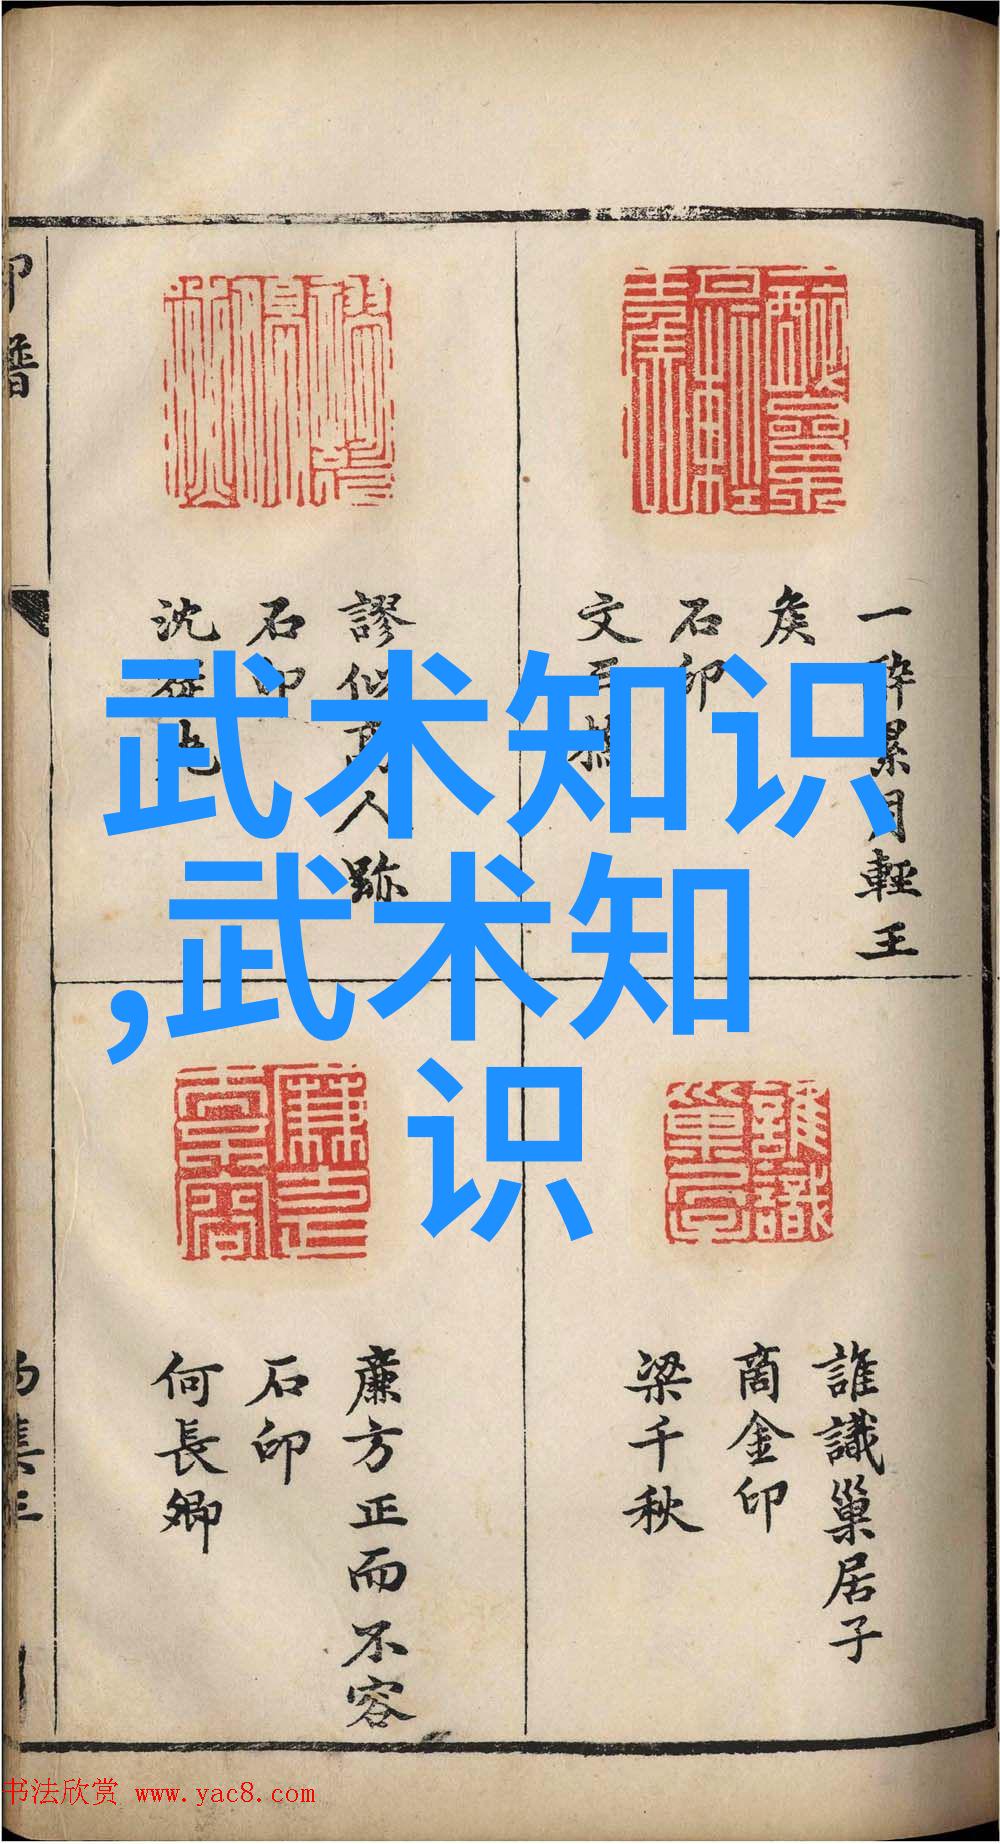 武术知识
,武术知
识
一醉累月輕王
矦
石印
文三橋
謬似高人跡
石印
沈
誰識巢居子
商金印
梁千秋
廉方正而不容
石印
何長卿
印譜
書法欣赏 www.yac8.com